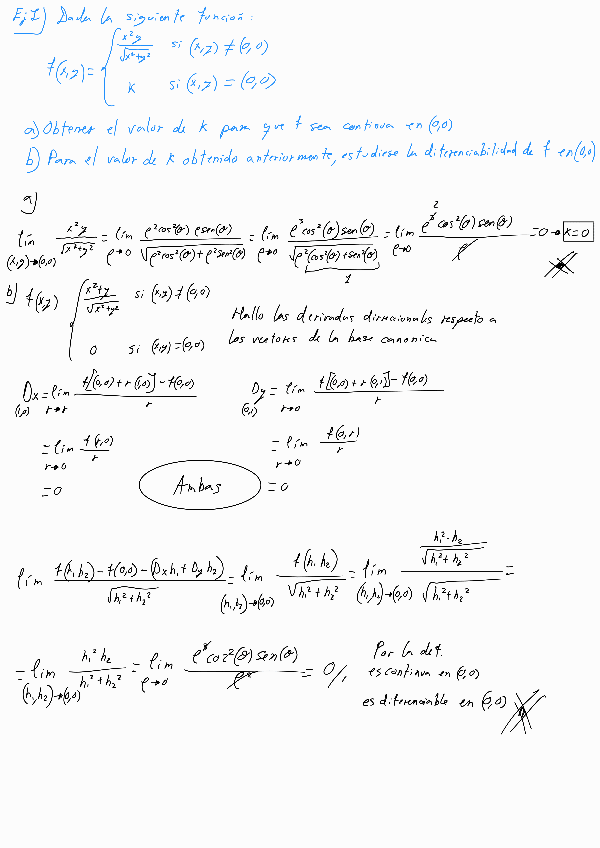 Ej 1) Dada la siguiente función:
f(x,y) = { x²y / √(x²+y²) si (x,y) ≠ (0,0)
K si (x,y) = (0,0)
a) Obtener el valor de K para que f sea continua en (0,0)
b) Para el valor de K obtenido anteriormente, estudiese la diferenciabilidad de f en (0,0)
a)
lím (x,y)→(0,0) x²y / √(x²+y²) = lím ρ→0 ρ²cos²(θ) ρsen(θ) / √(ρ²cos²(θ)+ρ²sen²(θ)) = lím ρ→0 ρ³cos²(θ)sen(θ) / √(ρ²(cos²(θ)+sen²(θ))) = lím ρ→0 ρ³ 2 cos²(θ)sen(θ) / ρ = 0 → K=0
1
b) f(x,y) { x²+y / √(x²+y²) si (x,y) ≠ (0,0)
0 si (x,y) = (0,0)
Hallo las derivadas direccionales respecto a
los vectores de la base canonica
Dx (1,0) = lím r→r f[(0,0)+r(1,0)] - f(0,0) / r
Dy (0,1) = lím r→0 f[(0,0)+r(0,1)] - f(0,0) / r
= lím r→0 f(r,0) / r
= lím r→0 f(0,r) / r
= 0 Ambas = 0
lím f(h₁h₂) - f(0,0) - (Dx h₁ + Dy h₂) / √(h₁²+h₂²) = lím (h₁,h₂)→(0,0) f(h₁ h₂) / √(h₁²+h₂²) = lím (h₁,h₂)→(0,0) h₁²·h₂ / √(h₁²+h₂²) / √(h₁²+h₂²) =
= lím (h₁,h₂)→(0,0) h₁² h₂ / h₁²+h₂² = lím ρ→0 ρ³cos²(θ)sen(θ) / ρ² = 0//,
Por la def.
es continua en (0,0)
es diferenciable en (0,0)